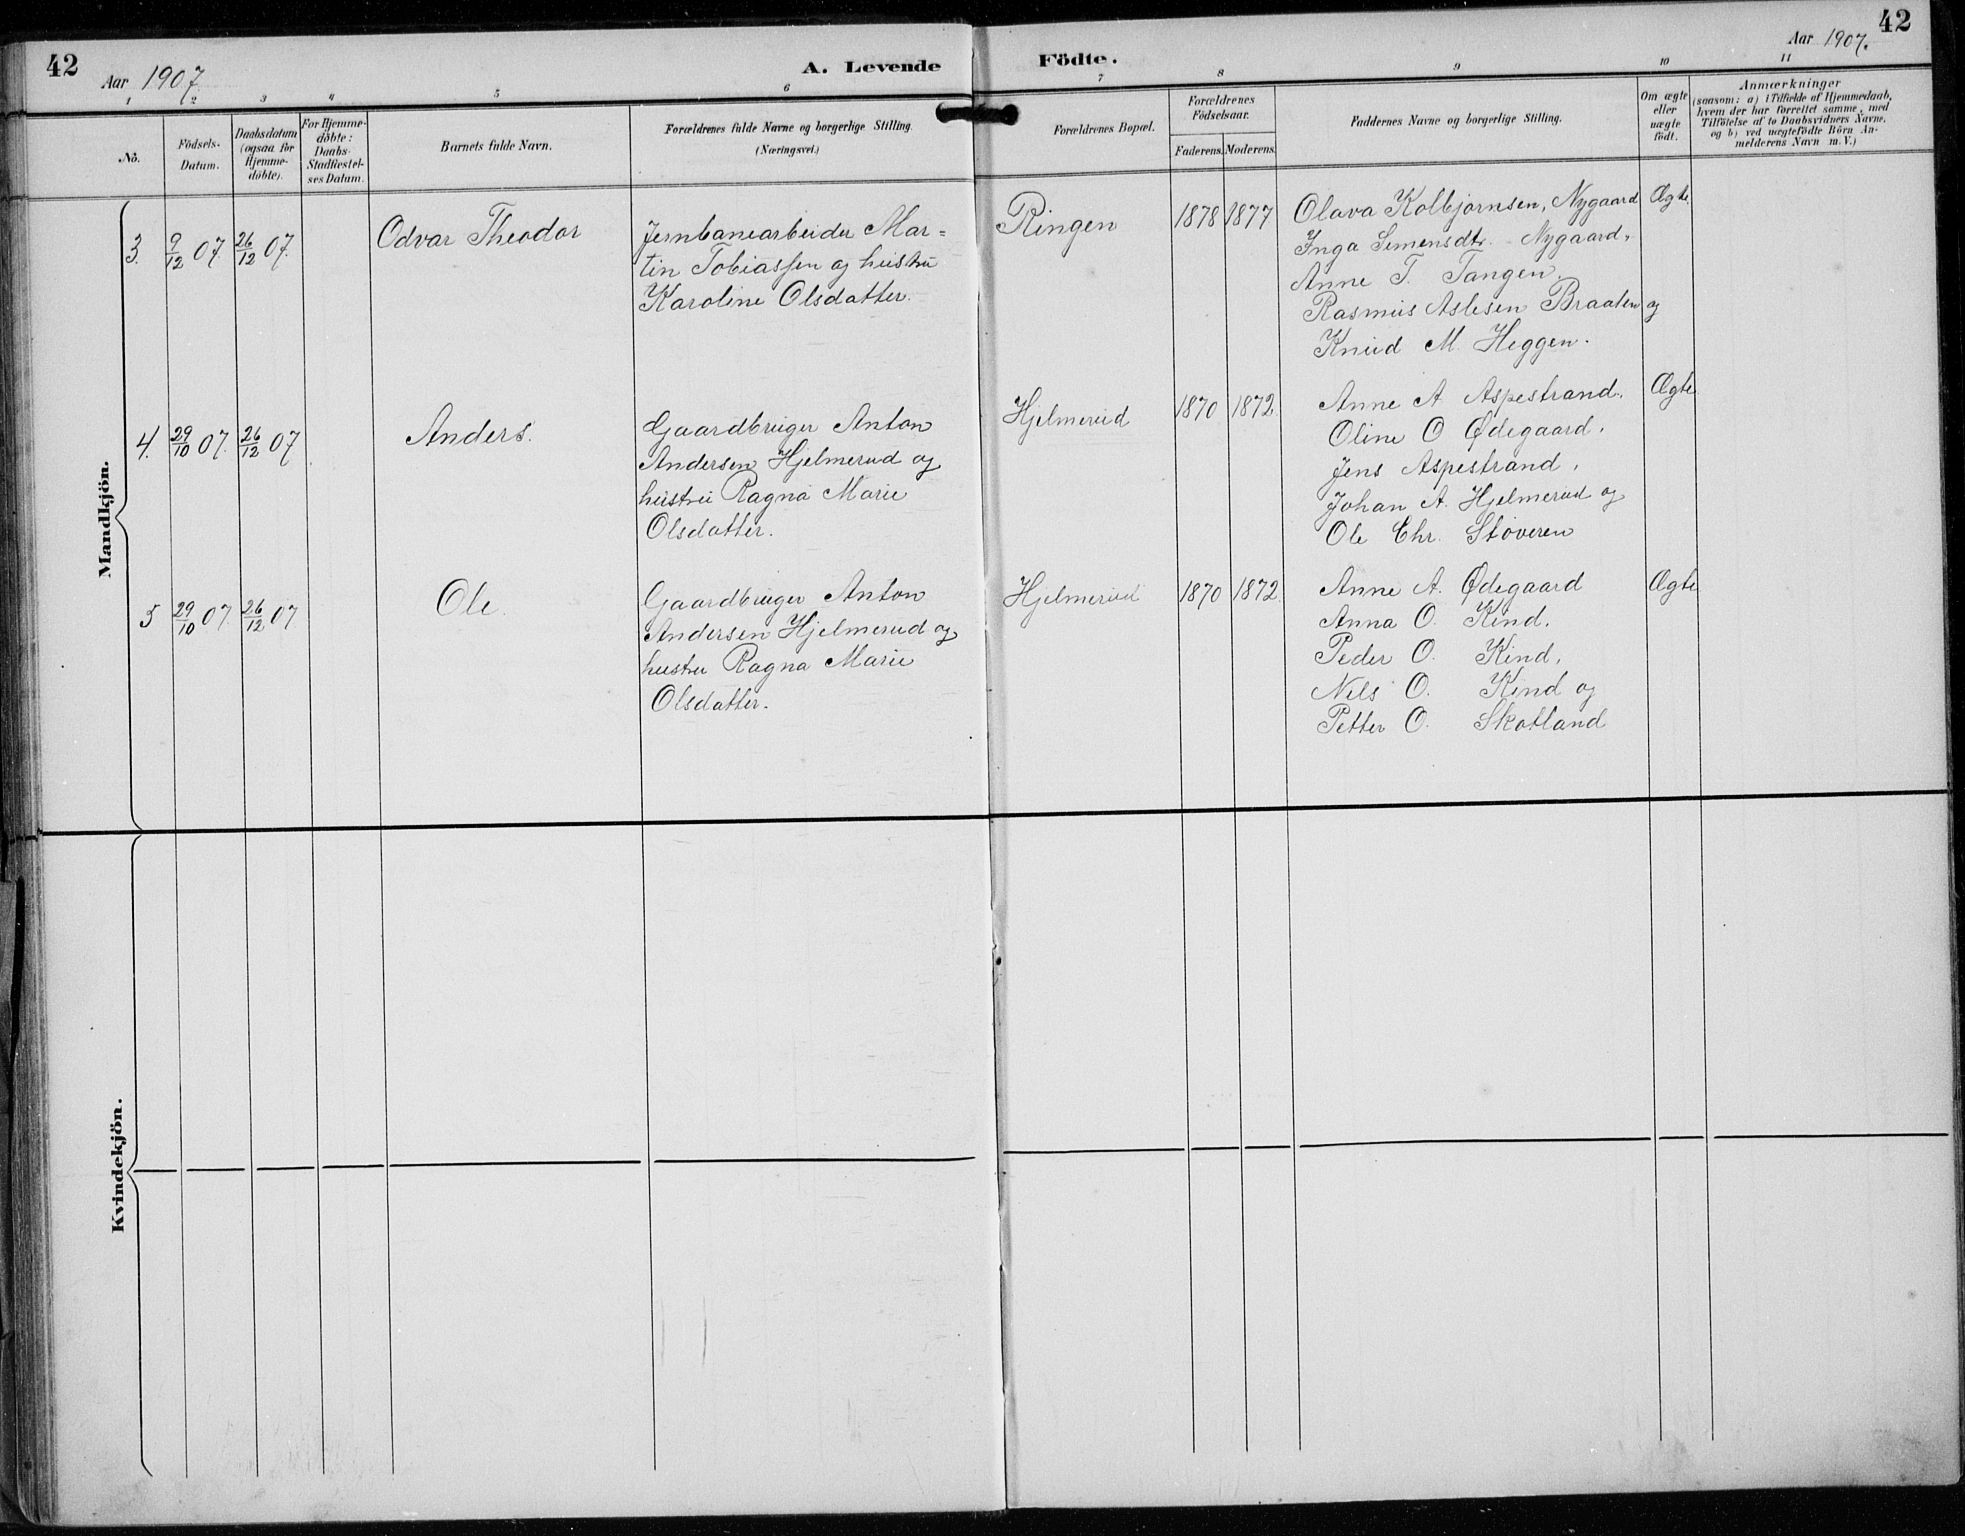 42
Aar 1907.
A. Levende
Födte.
Aar 1907.
42
1 2 3 4 5 6 7 8 9 10 11
No.
Födsels-
Datum.
Daabsdatum
(ogsaa for
Hjemme-
döbte).
For Hjemme-
döbte:
Daabs-
Stadfæstel-
ses Datum.
Barnets fulde Navn.
Forældrenes fulde Navne og borgerlige Stilling.
(Næringsvei.)
Forældrenes Bopæl.
Forældrenes
Födselsaar.
Faderens. Moderens.
Faddernes Navne og borgerlige Stilling.
Om ægte
eller
uægte
födt.
Anmærkninger
(saasom: a) i Tilfælde af Hjemmedaab,
hvem der har forrettet samme, med
Tilföielse af to Daabsvidners Navne,
og b) ved uægtefödte Börn An-
melderens Navn m. V.)
Mandkjön.
3. 9/12 07. 26/12 07.
Odvar Theodor
Jernbanearbeider Mar=
tin Tobiassen og hustru
Karoline Olsdatter.
Ringen
1878 1877
Olava Kolbjørnsen, Nygaard
Inga Simensdtr. Nygaard,
Anne T. Tangen.
Rasmus Aslesen Braaten og
Knud M. Heggen.
Ægte
4. 29/10 07. 26/12 07
Anders.
Gaardbruger Anton
Andersen Hjelmerud og
hustru Ragna Marie
Olsdatter.
Hjelmerud
1870 1872.
Anne A Aspestrand.
Oline O Ødegaard.
Jens Aspestrand,
Johan A. Hjelmerud og
Ole Chr. Støveren
Ægte
5 29/10 07. 26/12 07
Ole.
Gaardbruger Anton
Andersen Hjelmerud og
hustru Ragna Marie
Olsdatter.
Hjelmerud
1870 1872.
Anne A. Ødegaard
Anna O. Kind.
Peder O. Kind,
Nils O. Kind og
Petter O. Skotland
Ægte
Kvindekjön.